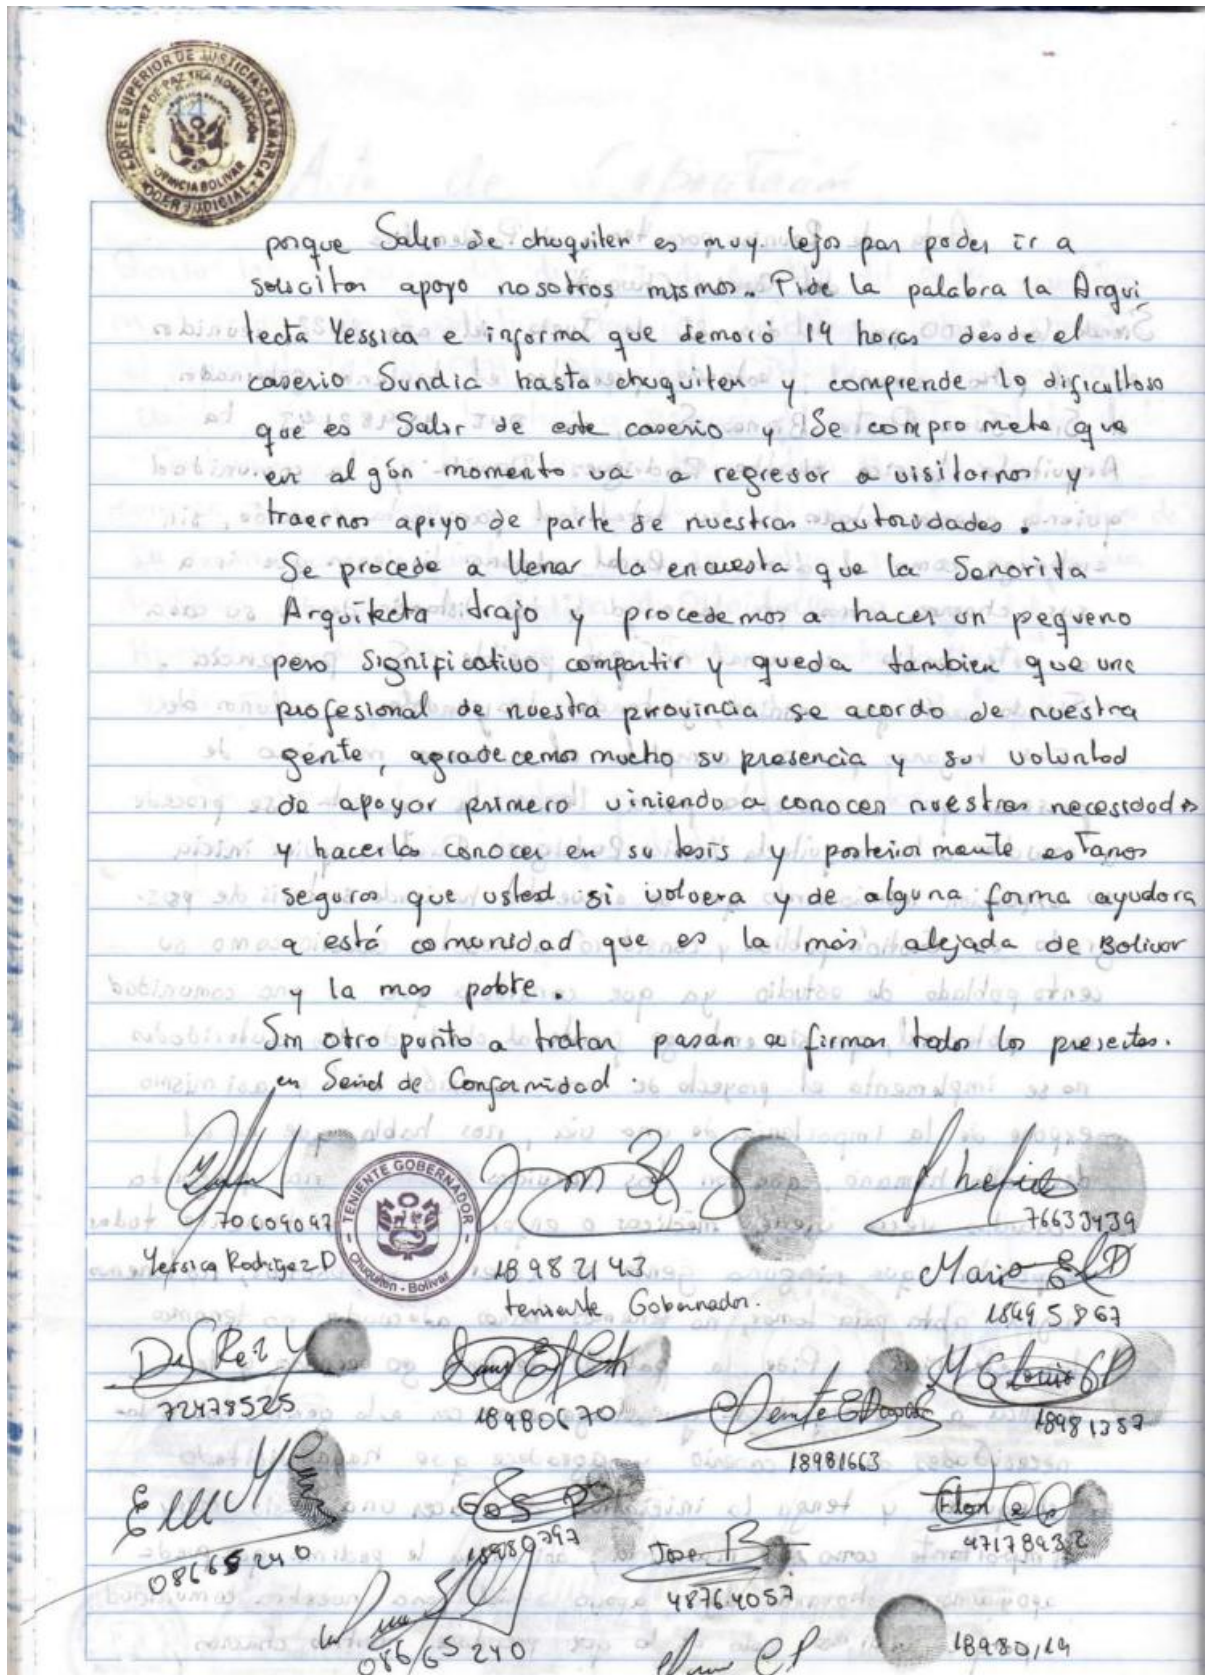 CORTE SUPERIOR DE JUSTICIA CAJAMARCA
JUEZ DE PAZ 1RA NOMINACIÓN
PROVINCIA BOLIVAR
PODER JUDICIAL
44
porque Salir de chuquiten es muy lejos par poder ir a
solicitar apoyo nosotros mismos. Pide la palabra la Arqui
tecta Yessica e informa que demoró 14 horas desde el
caserio Sundia hasta chuquiten y comprende lo dificultoso
que es Salir de este caserio y Se compromete que
en algón momento va a regresar a visitarnos y
traernos apoyo de parte de nuestras autoridades.
Se procede a llenar la encuesta que la Senorita
Arquitecta trajo y procedemos a hacer un pequeno
pero significativo compartir y queda tambien que una
profesional de nuestra provincia se acordo de nuestra
gente, agradecemos mucho su presencia y su voluntad
de apoyar primero viniendo a conocer nuestras necesidades
y hacerlas conocer en su tesis y posteriormente estanos
seguros que usted si volvera y de alguna forma ayudara
a está comunidad que es la más alejada de Bolivar
y la mas pobre.
Sin otro punto a tratar pasan a firmar todos los presentes.
en Senal de Conformidad.
70609097
Yessica Rodriguez D
TENIENTE GOBERNADOR
Chuquiten - Bolivar
18982143
teniente Gobernador.
76633439
Mario
18495867
72478525
18980670
18981663
18981387
08665240
18980797
José
48764057
Flor
47178932
08665240
18980,19